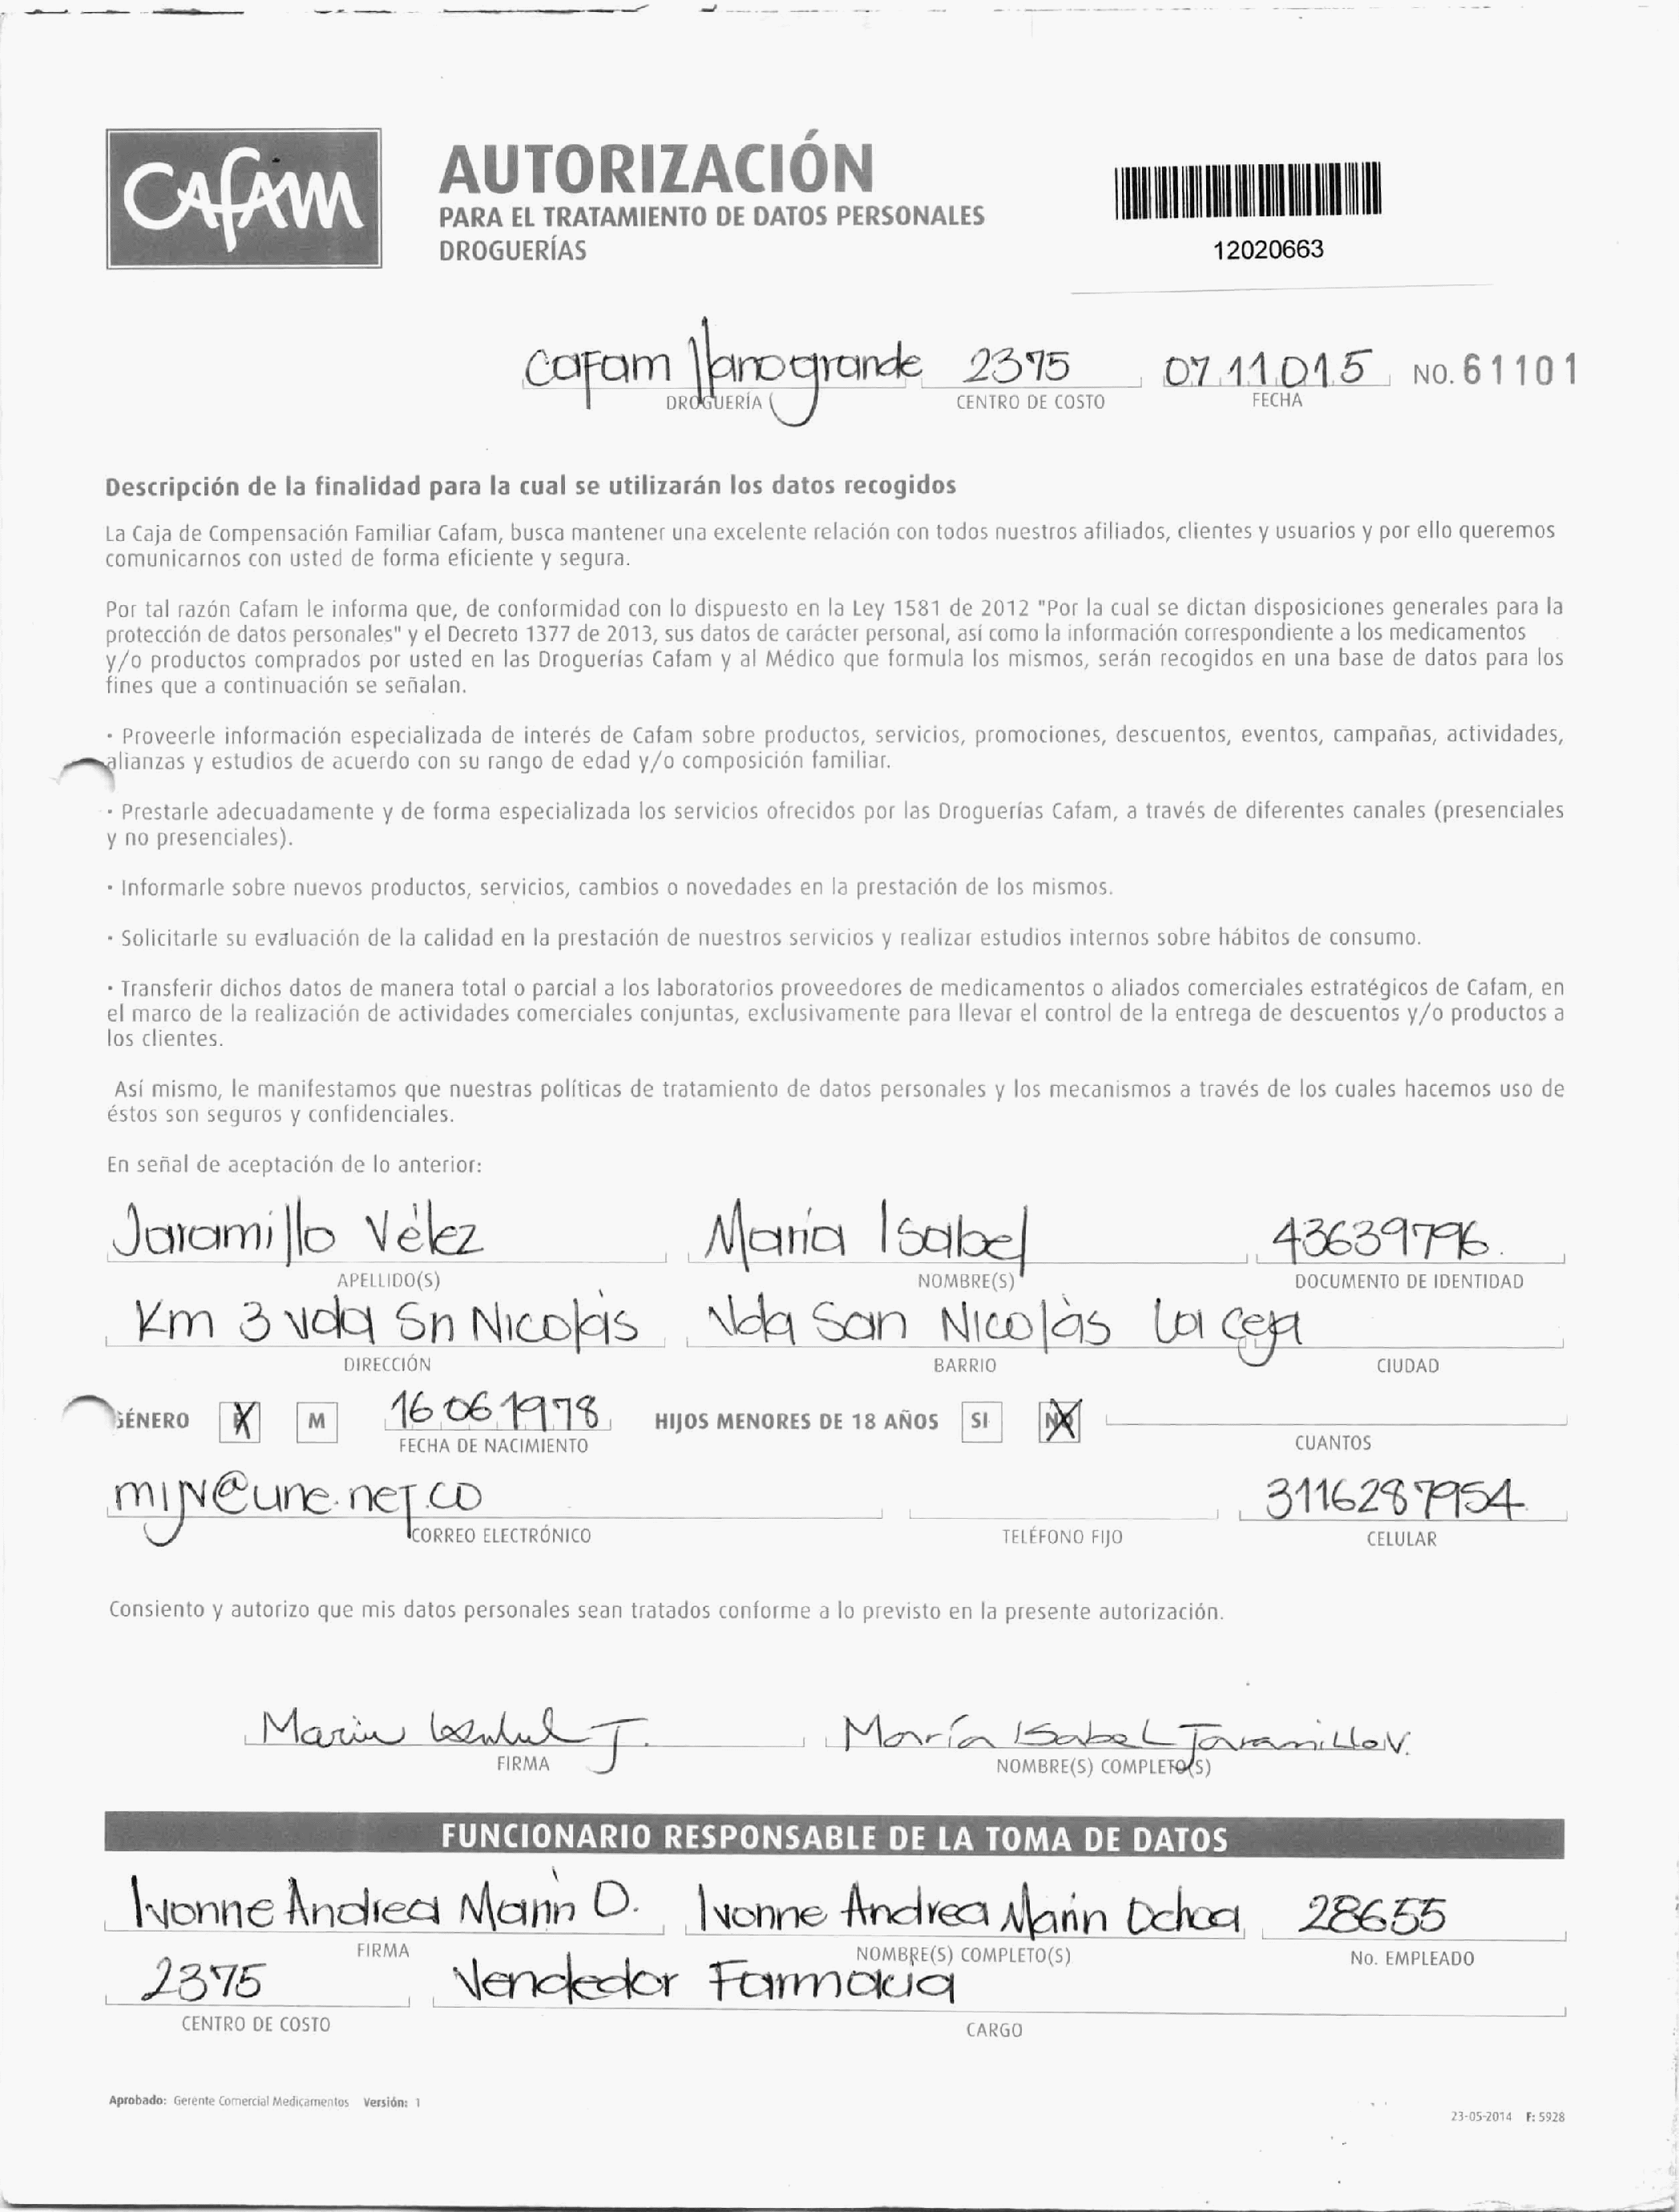 CAFAM
AUTORIZACIÓN
PARA EL TRATAMIENTO DE DATOS PERSONALES
DROGUERÍAS
12020663
Cafam llanogrande 2375 07 11 015 NO. 61101
DROGUERÍA CENTRO DE COSTO FECHA
Descripción de la finalidad para la cual se utilizarán los datos recogidos
La Caja de Compensación Familiar Cafam, busca mantener una excelente relación con todos nuestros afiliados, clientes y usuarios y por ello queremos
comunicarnos con usted de forma eficiente y segura.
Por tal razón Cafam le informa que, de conformidad con lo dispuesto en la Ley 1581 de 2012 "Por la cual se dictan disposiciones generales para la
protección de datos personales" y el Decreto 1377 de 2013, sus datos de carácter personal, así como la información correspondiente a los medicamentos
y/o productos comprados por usted en las Droguerías Cafam y al Médico que formula los mismos, serán recogidos en una base de datos para los
fines que a continuación se señalan.
· Proveerle información especializada de interés de Cafam sobre productos, servicios, promociones, descuentos, eventos, campañas, actividades,
alianzas y estudios de acuerdo con su rango de edad y/o composición familiar.
· Prestarle adecuadamente y de forma especializada los servicios ofrecidos por las Droguerías Cafam, a través de diferentes canales (presenciales
y no presenciales).
· Informarle sobre nuevos productos, servicios, cambios o novedades en la prestación de los mismos.
· Solicitarle su evaluación de la calidad en la prestación de nuestros servicios y realizar estudios internos sobre hábitos de consumo.
· Transferir dichos datos de manera total o parcial a los laboratorios proveedores de medicamentos o aliados comerciales estratégicos de Cafam, en
el marco de la realización de actividades comerciales conjuntas, exclusivamente para llevar el control de la entrega de descuentos y/o productos a
los clientes.
Así mismo, le manifestamos que nuestras políticas de tratamiento de datos personales y los mecanismos a través de los cuales hacemos uso de
éstos son seguros y confidenciales.
En señal de aceptación de lo anterior:
Jaramillo Vélez María Isabel 43639796.
APELLIDO(S) NOMBRE(S) DOCUMENTO DE IDENTIDAD
Km 3 vda Sn Nicolás Vda San Nicolás La Ceja
DIRECCIÓN BARRIO CIUDAD
GÉNERO X M 16 06 1978 HIJOS MENORES DE 18 AÑOS SI NO X
FECHA DE NACIMIENTO CUANTOS
mijv@une.net.co 3116287954
CORREO ELECTRÓNICO TELÉFONO FIJO CELULAR
Consiento y autorizo que mis datos personales sean tratados conforme a lo previsto en la presente autorización.
Maria Isabel J. María Isabel Jaramillo V.
FIRMA NOMBRE(S) COMPLETO(S)
FUNCIONARIO RESPONSABLE DE LA TOMA DE DATOS
Ivonne Andrea Marin O. Ivonne Andrea Marin Ochoa 28655
FIRMA NOMBRE(S) COMPLETO(S) No. EMPLEADO
2375 Vendedor Farmacia
CENTRO DE COSTO CARGO
Aprobado: Gerente Comercial Medicamentos Versión: 1
23-05-2014 F: 5928